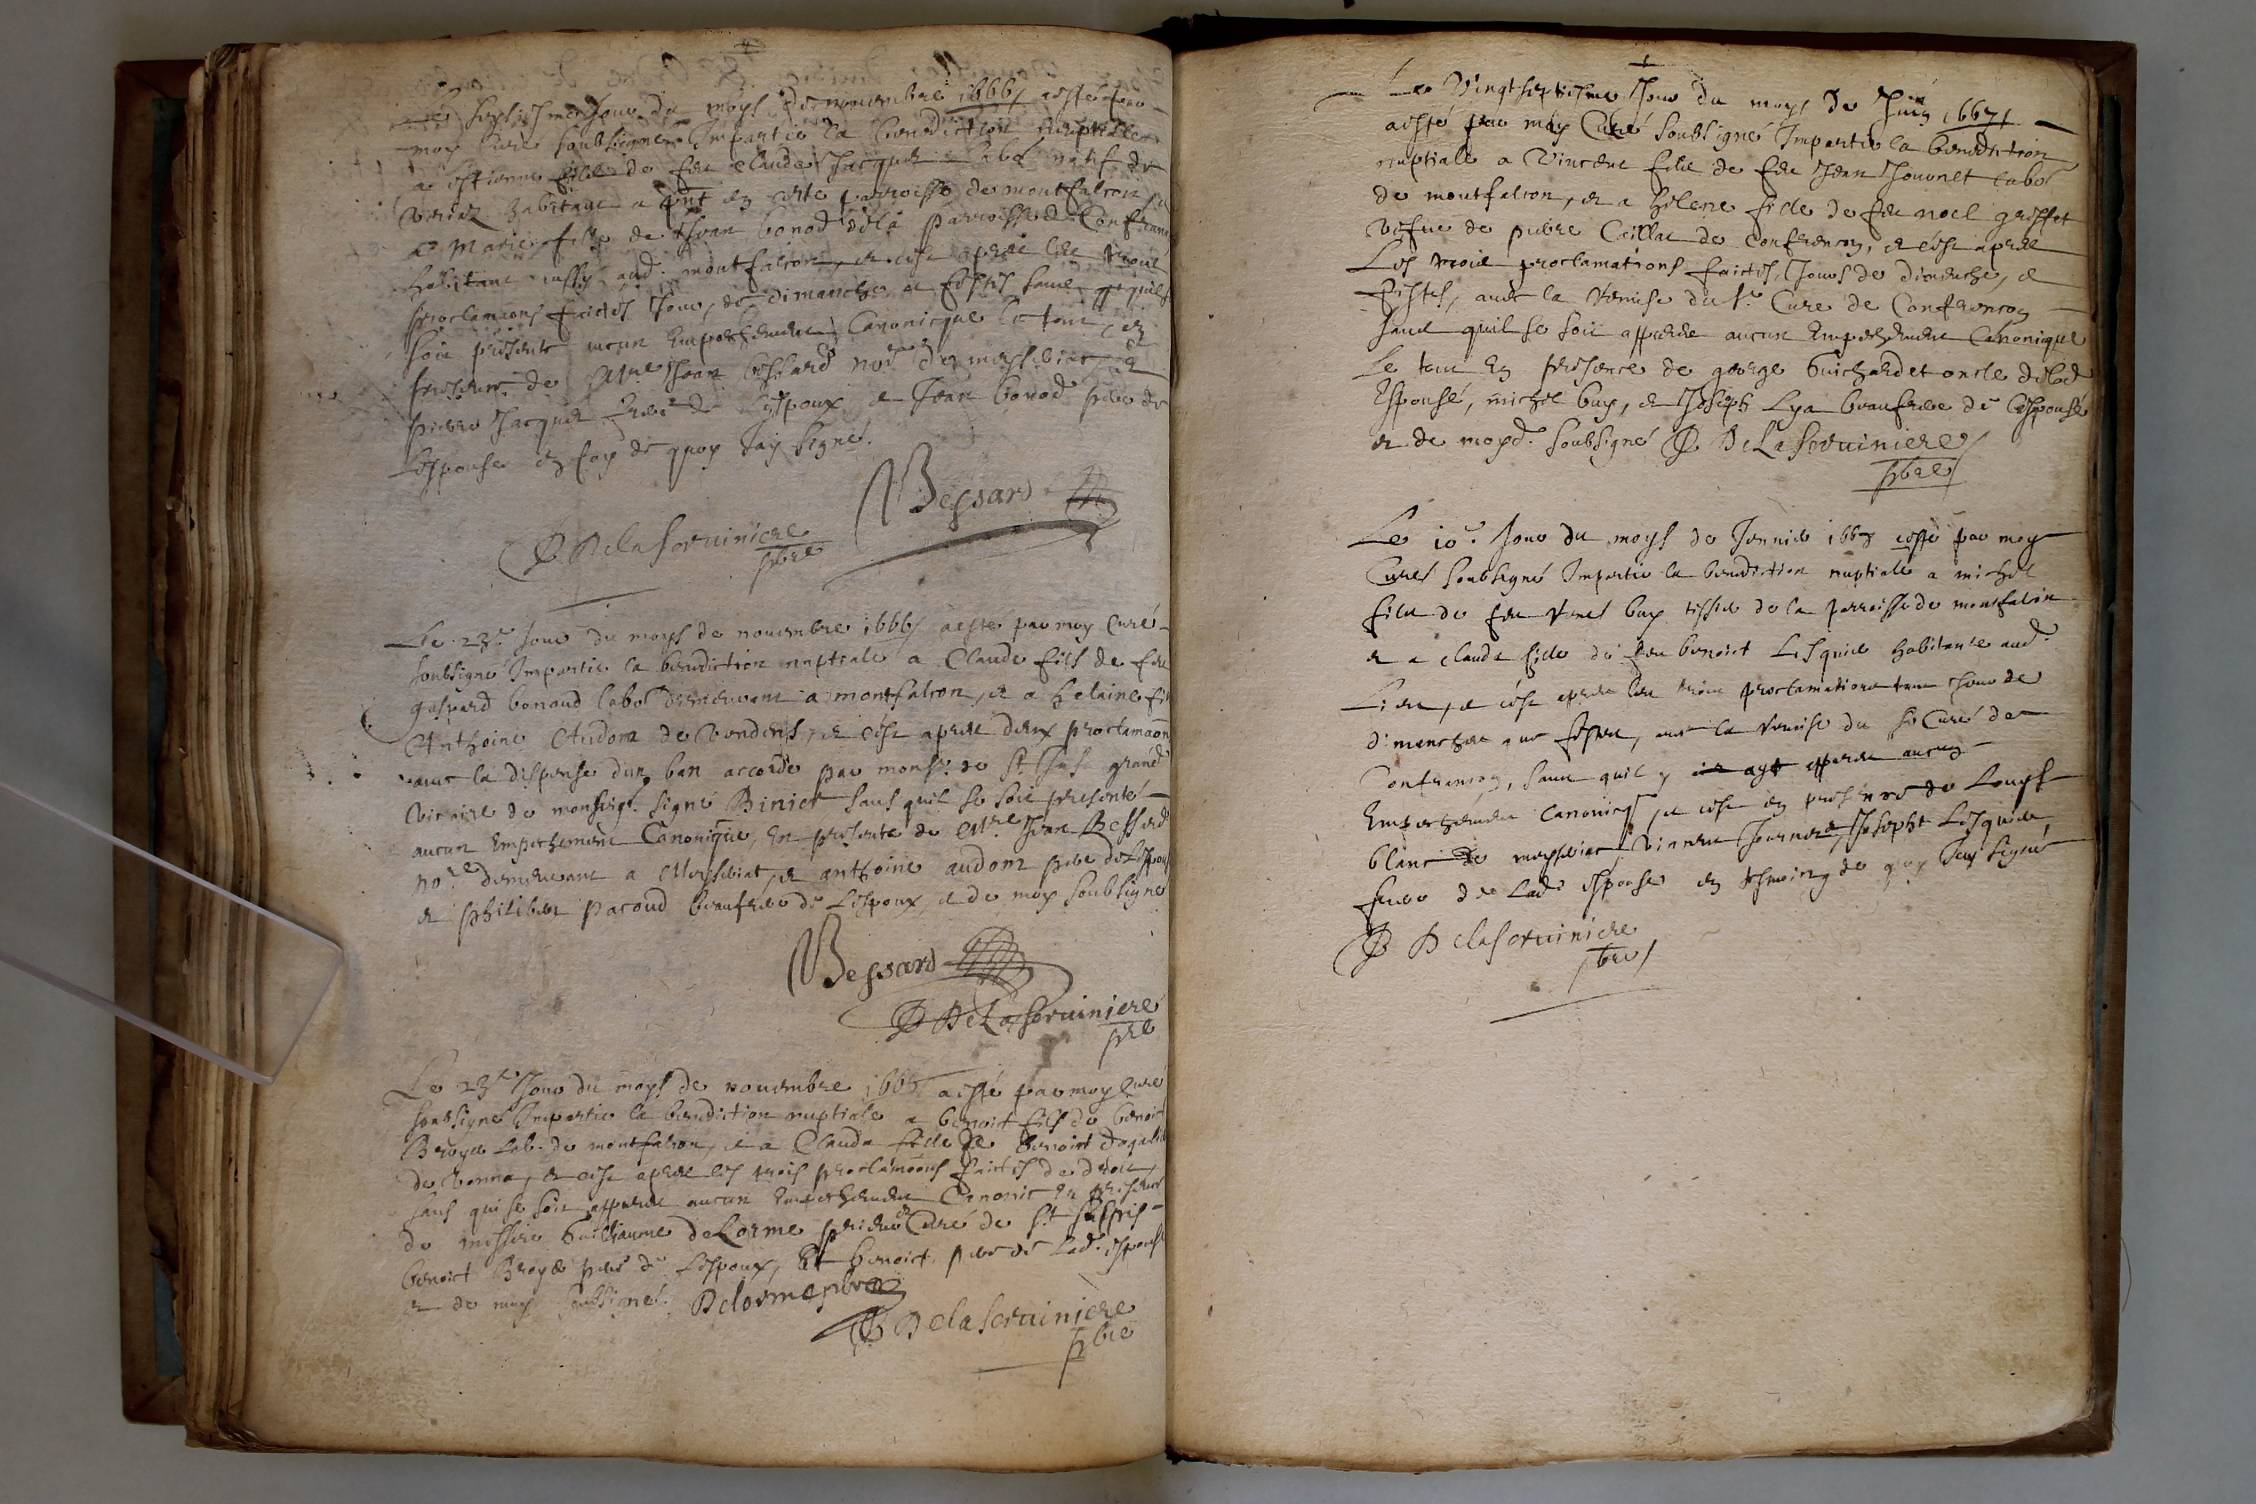 Le septiesme Jour du moys de nouembre 1666 aesté par
moy Curé soubsigne Impartie la benediction nuptialle
a estienne filz de feu Claude Jacquet labor natif de
habitant a pnt en ceste parroisse de montfalcon
a Marie fille de Jean bonod de la parroisse de Confrancon
habitant aussy aud. montfalcon, et c'est apres les trois
proclamaons faictes Jours de dimanche et festes sans qu
soit presenté aucun Empeschement Canonicque le tout en
presence de Mre Jean bessard nore de meysseriat, et
pierre Jacquet frere de L'espoux et Jean bonod pere de
L'espouse en foy de quoy Jay signé.
Bessard
P Delaseruiniere
pbre
Le 23e Jour du moys de nouembre 1666 aesté par moy Curé
soubsigné Impartie la benediction nuptiale a Claude filz de feu
gaspard bonaud labor demeurant a montfalcon, et a helaine fi
Anthoine Audom de Vondens, et c'est apres deux proclamaon
auec la dispense d'un ban accordé par monsr. de St grand
Vicaire de monseigr. signé Biniet sans quil se soit presenté
aucun Empeschement Canonique, En presente de Mre Jean Bessard
nore demeurant a Meysseriat, et anthoine audom pere de L'espouse
et philibert pacoud beaufrere de L'espoux, et de moy soubsigné
Bessard
P DeLaseruiniere
pre
Le 23e Jour du moys de nouembre 1666 aesté par moy Curé
soubsigné Impartie la benediction nuptiale a benoist filz de benoist
Broye lab. de montfalcon, et a Clauda fille de Benoist
de Vonna, et c'est apres les trois proclamaons faictes de droit,
sans qui se soit apparu aucun Empeschement Canonic En presence
de missire Guilliaume deLorme prieur et Curé de St Supris
benoist Broye pere de L'espoux, Et benoist pere de Lad. espouse
et de moy soubsigné. Delorme pbre
P Delaseruiniere
pbre
Le Vingtseptiesme Jour du moys de Juin 1667
aesté par moy Curé soubsigné Impartie la benediction
nuptiale a Vincent filz de feu Jean Jouonet labor
de montfalcon, et a helene fille de feu noel griffet
Vefue de pierre Caillat de confrencon, et c'est apres
Les trois proclamations faictes Jours de dimenche, et
festes, auec la remise du sr Cure de Confrencon
sans quil se soit apparu aucun Empeschement Canonique
Le tout En presence de george Guichardet oncle de lad
Espouse, michel buy, et Joseph Lya beaufrere de l'espouse
et de moyd. soubsigné P DeLaseruiniere
pbre
Le 10e. Jour du moys de Januier 1668 aesté par moy
Curé soubsigné Impartie la benediction nuptiale a michel
filz de feu buy tissier de la parroisse de montfalcon
et a clauda fille de feu benoist Lesquie habitante aud.
Lieu, et c'est apres les trois proclamations tant Jour de
dimenches que festes, auec la remise du sr Curé de
Confrencon, sans quil y ayt apparu aucun
Empeschement canonicq, et c'est en presence de Louys
blanc de meysseriat, Vincent Journet, Joseph Lesquie,
frere de Lad. espouse en tesmoing de quoy Jay signé
P Delaseruiniere
pbre